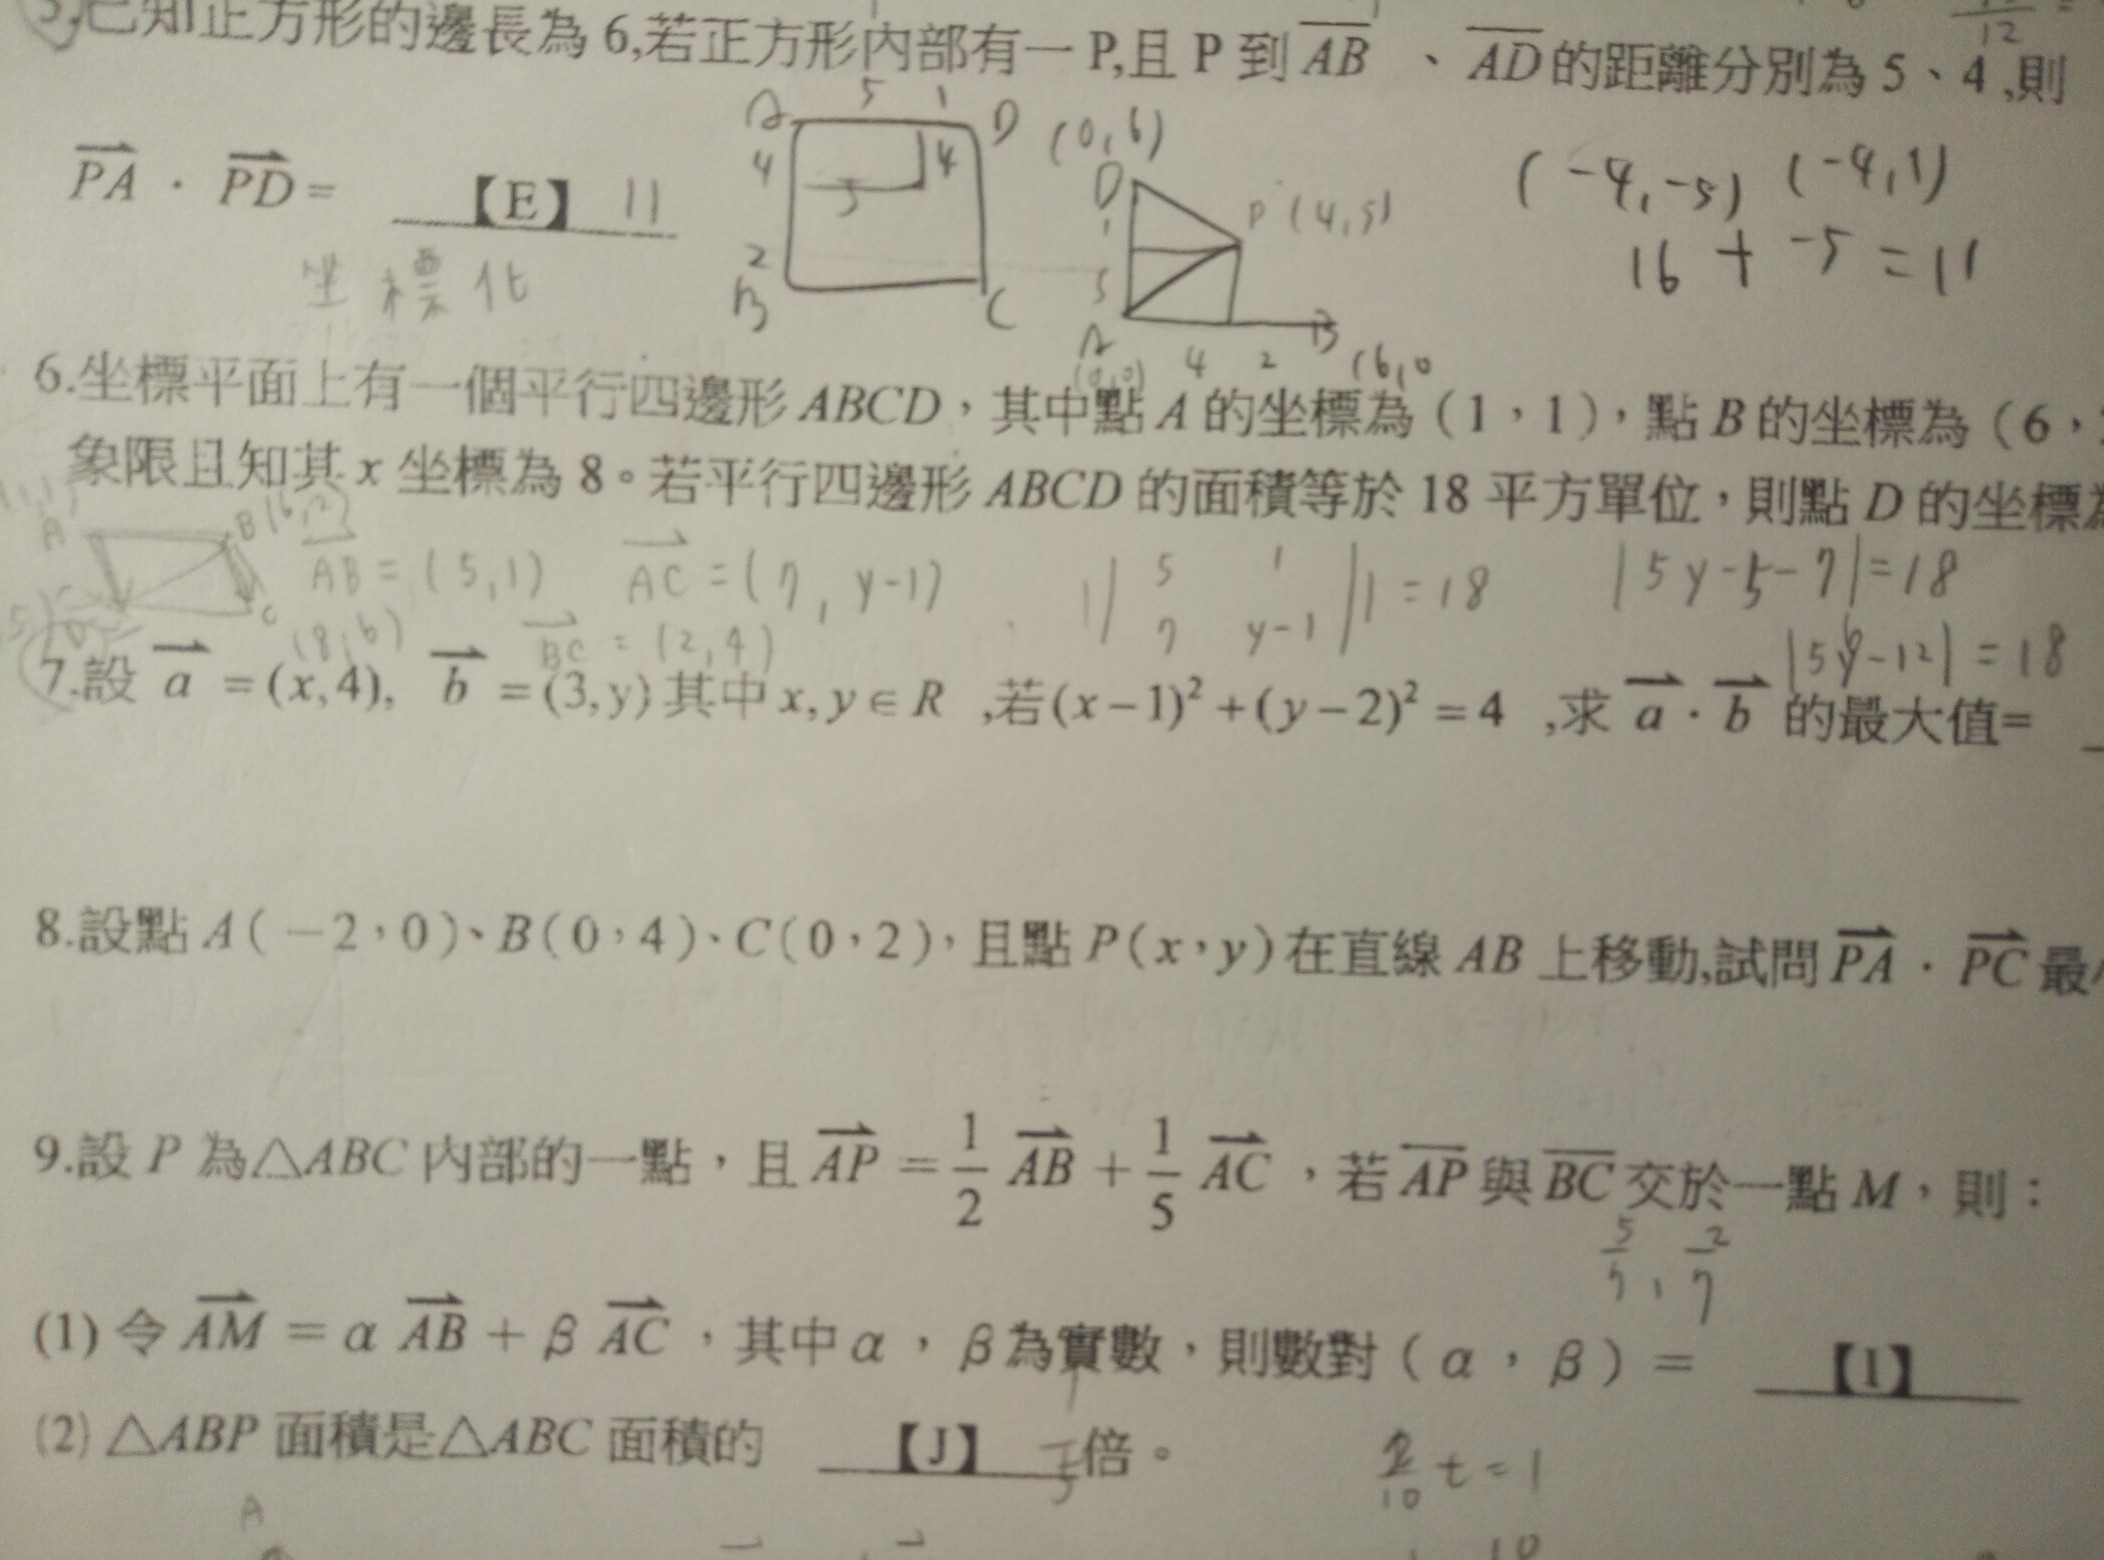 已知正方形的邊長為 6,若正方形內部有一 P,且 P 到 AB 、 AD 的距離分別為 5、4 ,則
PA · PD = 【E】 11
坐標化
A 5 1 D
4 4
5
2
B C
(0,6)
D
1
5
P (4,5)
A 4 2 B
(0,0) (6,0
(-4,-5) (-4,1)
16 + -5 = 11
6.坐標平面上有一個平行四邊形 ABCD,其中點 A 的坐標為(1,1),點 B 的坐標為(6,
象限且知其 x 坐標為 8。若平行四邊形 ABCD 的面積等於 18 平方單位,則點 D 的坐標為
A B(6,2)
C (8,6)
AB = (5,1) AC = (7, y-1) || 5 1 || = 18 |5y-5-7| = 18
7 y-1
BC = (2,4) |5y-12| = 18
7.設 a = (x,4), b = (3,y) 其中 x, y ∈ R ,若 (x−1)² + (y−2)² = 4 ,求 a · b 的最大值=
8.設點 A(−2,0)、B(0,4)、C(0,2),且點 P(x,y)在直線 AB 上移動,試問 PA · PC 最
9.設 P 為△ABC 內部的一點,且 AP = 1/2 AB + 1/5 AC ,若 AP 與 BC 交於一點 M,則:
5/7 , 2/7
(1) 令 AM = α AB + β AC,其中 α,β 為實數,則數對(α,β)= 【I】
(2) △ABP 面積是△ABC 面積的 【J】 1/5 倍。
t = 1
A